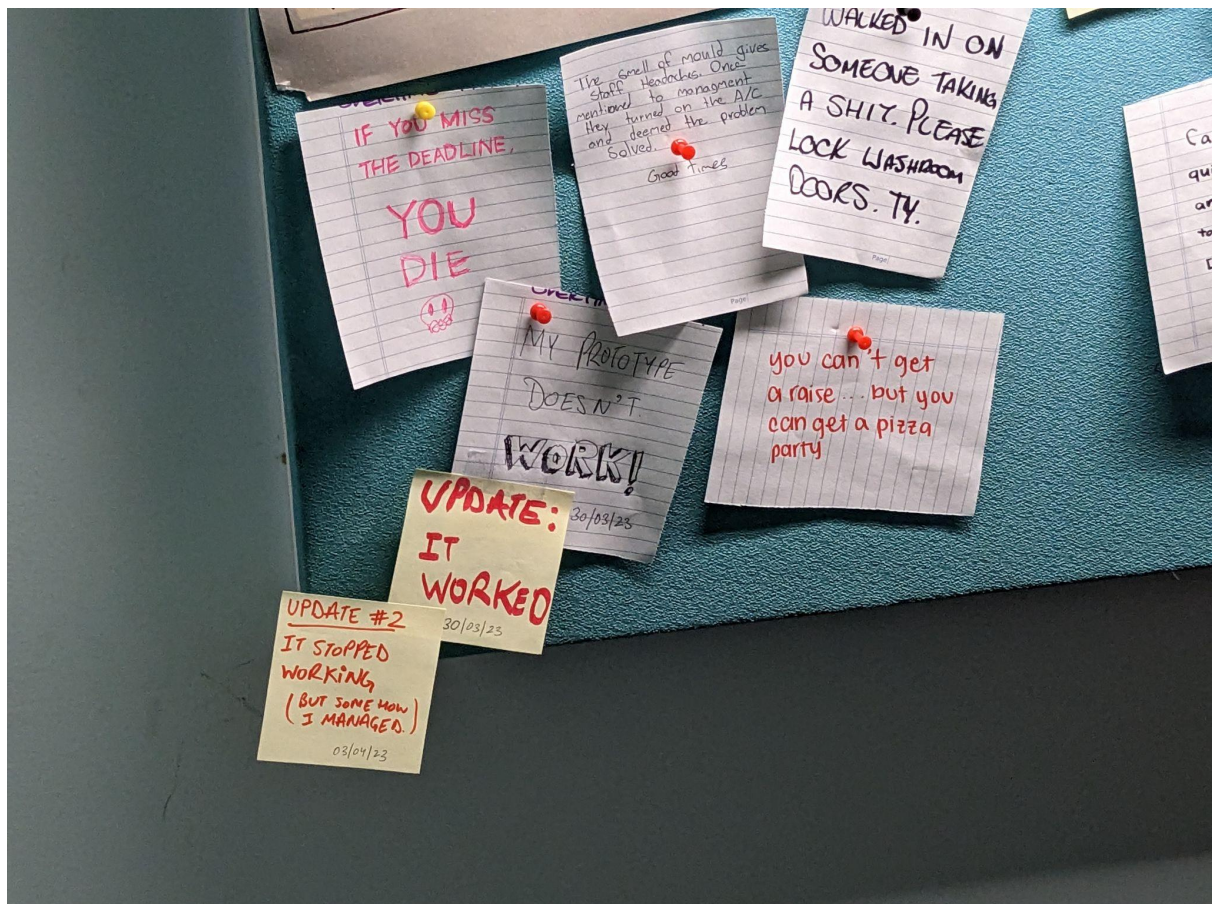 IF YOU MISS
THE DEADLINE,
YOU
DIE
The smell of mould gives
staff Headaches. Once
mentioned to managment
they turned on the A/C
and deemed the problem
Solved.
Good times
Page|
WALKED IN ON
SOMEONE TAKING
A SHIT. PLEASE
LOCK WASHROOM
DOORS. TY.
Page|
MY PROTOTYPE
DOESN'T
WORK!
30/03/23
you can't get
a raise... but you
can get a pizza
party
UPDATE:
IT
WORKED
30/03/23
UPDATE #2
IT STOPPED
WORKING
(BUT SOMEHOW
I MANAGED.)
03/04/23